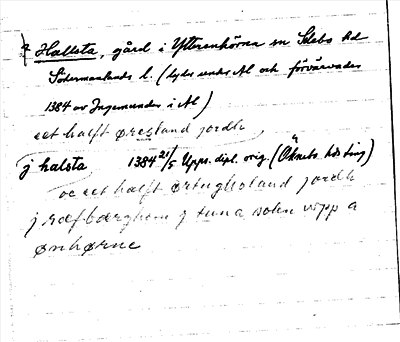 Hallsta, gård i Ytterenhörna sn Selebo hd
Södermanlands l. (lydde under Al och förvärvades
1384 av Ingemundus i Al)
eet halft øresland jordh
j halsta 1384 21/5 Upps. dipl. orig. (Öknebo häs ting)
oc eet halft ørtughaland jordh
j ræfbærghom j tuna sokn vpp a
ønhørne